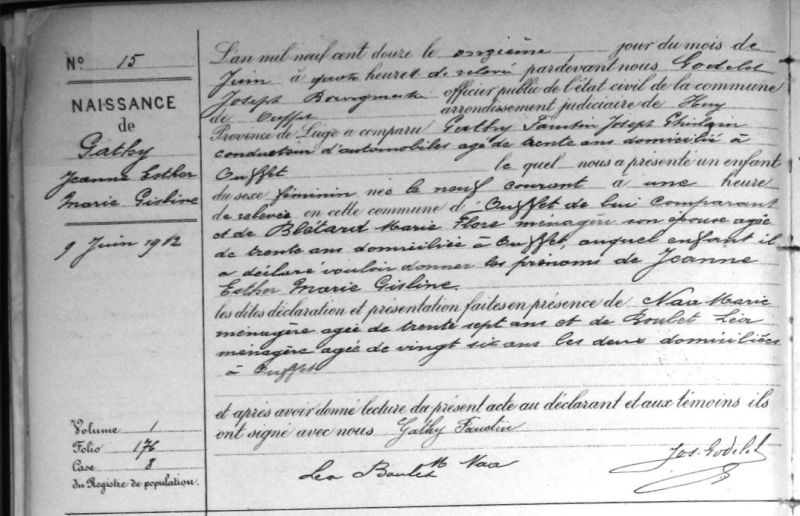 N° 15
NAISSANCE
de
Gathy
Jeanne Esther
Marie Gislène
9 Juin 1912
Volume 1
Folio 176
Case 8
du Registre de population.
L'an mil neuf cent douze le onzième jour du mois de
Juin à quatre heures de relevée pardevant nous Godelet
Joseph Bourgmestre officier public de l'état civil de la commune
de Ouffet arrondissement judiciaire de Huy
Province de Liége a comparu Gathy Faustin Joseph Ghislain
conducteur d'automobiles agé de trente ans domicilié à
Ouffet le quel nous a présenté un enfant
du sexe féminin née le neuf courant à une heure
de relevée en cette commune d'Ouffet de lui comparant
et de Blétard Marie Flore ménagère son épouse agée
de trente ans domiciliée à Ouffet, auquel enfant il
a déclaré vouloir donner les prénoms de Jeanne
Esther Marie Gislène.
les dites déclaration et présentation faites en présence de Naa Marie
ménagère agée de trente sept ans et de Boulet Léa
ménagère agée de vingt six ans les deux domiciliées
à Ouffet
et après avoir donné lecture du présent acte au déclarant et aux témoins ils
ont signé avec nous Gathy Faustin
Lea Boulet M Naa Jos. Godelet